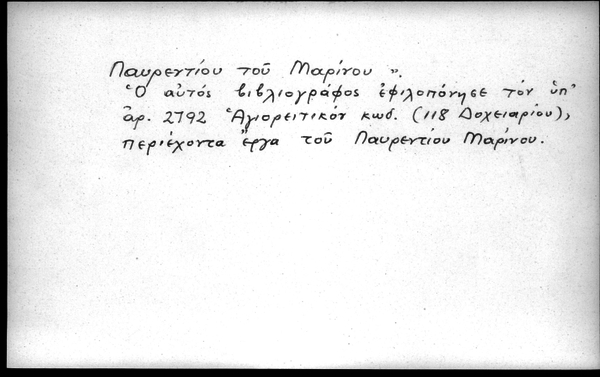 Λαυρεντίου τοῦ Μαρίνου ".
Ὁ αὐτός βιβλιογράφος ἐφιλοπόνησε τόν ὑπ'
ἀρ. 2792 Ἁγιορειτικόν κωδ. (118 Δοχειαρίου),
περιέχοντα ἔργα τοῦ Λαυρεντίου Μαρίνου.